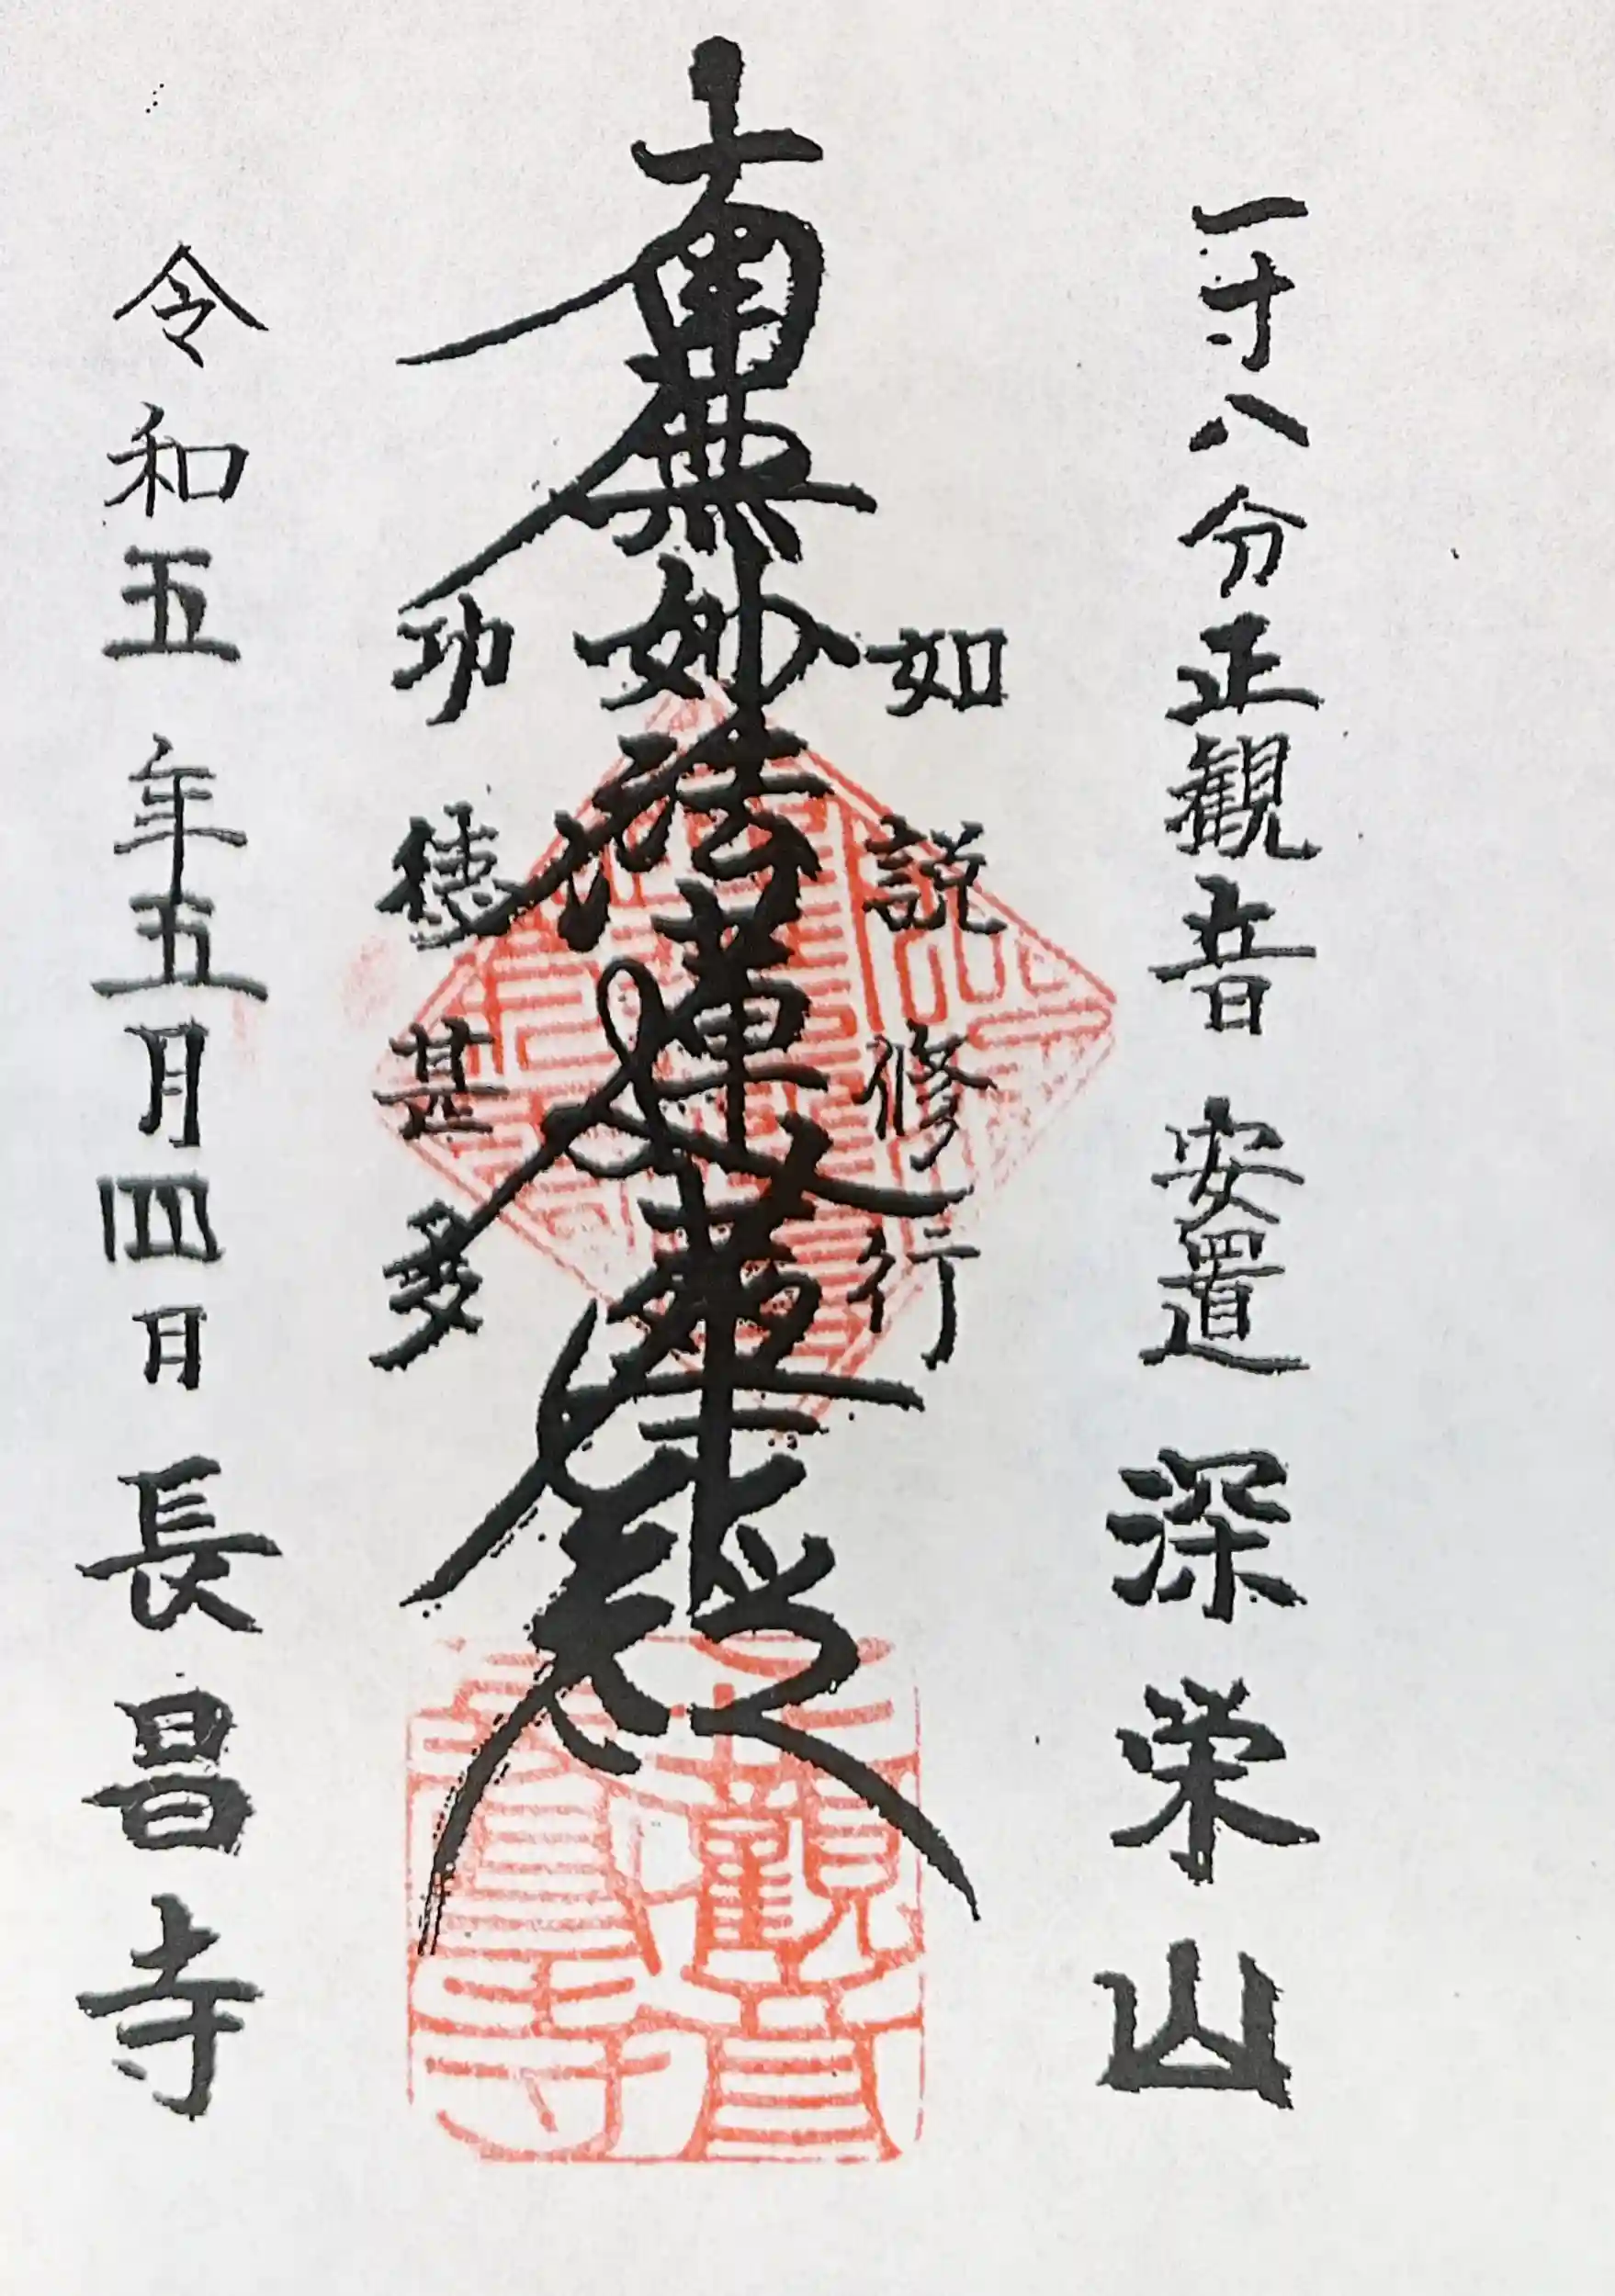 一寸八分正観音 安置 深栄山
如説修行
南無妙法蓮華経
功徳甚多
令和五年五月四日 長昌寺